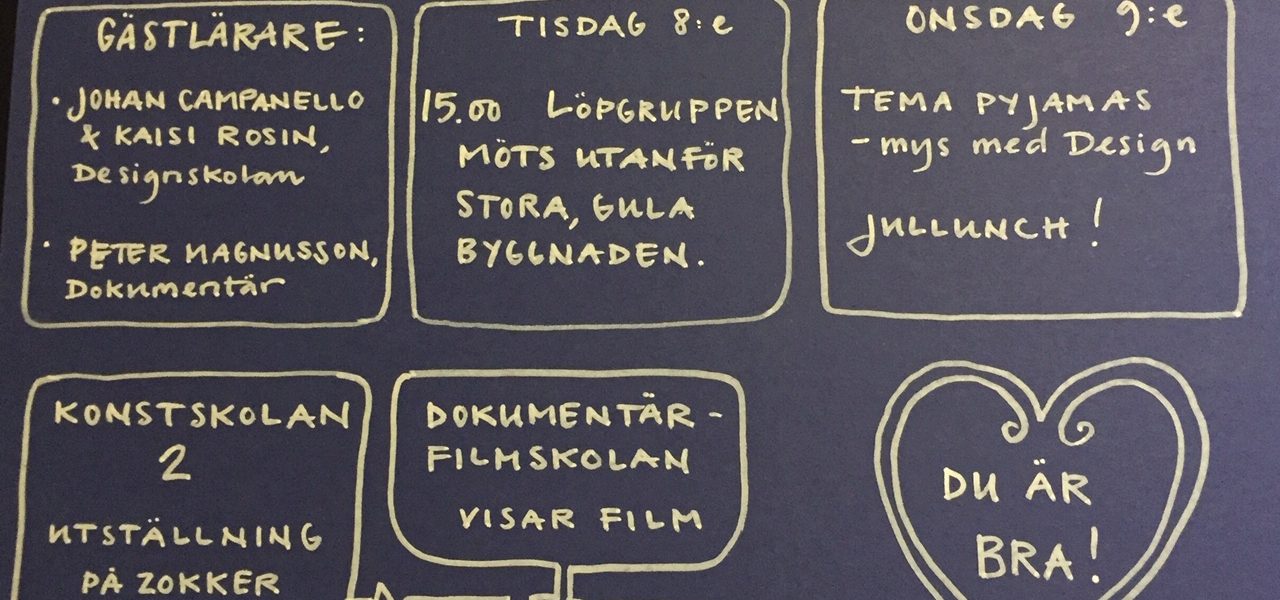 GÄSTLÄRARE:
• JOHAN CAMPANELLO
& KAISI ROSIN,
Designskolan
• PETER MAGNUSSON,
Dokumentär
TISDAG 8:e
15.00 LÖPGRUPPEN
MÖTS UTANFÖR
STORA, GULA
BYGGNADEN.
ONSDAG 9:e
TEMA PYJAMAS
- mys med Design
JULLUNCH!
KONSTSKOLAN
2
UTSTÄLLNING
PÅ ZOKKER
DOKUMENTÄR-
FILMSKOLAN
VISAR FILM
DU ÄR
BRA!